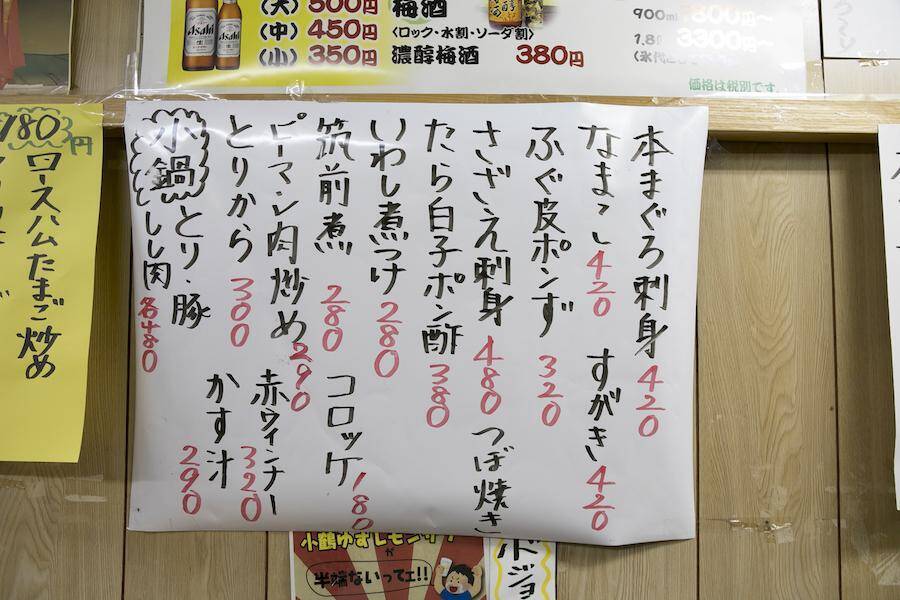 Asahi
Asahi
(大) 500円
(中) 450円
(小) 350円
梅酒
〈ロック・水割・ソーダ割〉
濃醇梅酒 380円
900ml 1800円〜
1.8ℓ 3300円〜
価格は税別です。
180円
ロースハムたまご炒め
本まぐろ刺身 420
なまこ 420
すがき 420
ふぐ皮ポンず 320
さざえ刺身 480
つぼ焼き
たら白子ポン酢 380
いわし煮つけ 280
筑前煮 280
コロッケ 180
ピーマン肉炒め 290
赤ウィンナー 320
とりから 300
かす汁 290
小鍋 とり・豚
しし肉 各480
小鶴ゆずレモンサワー
が
半端ないってエ!!
ドジョ